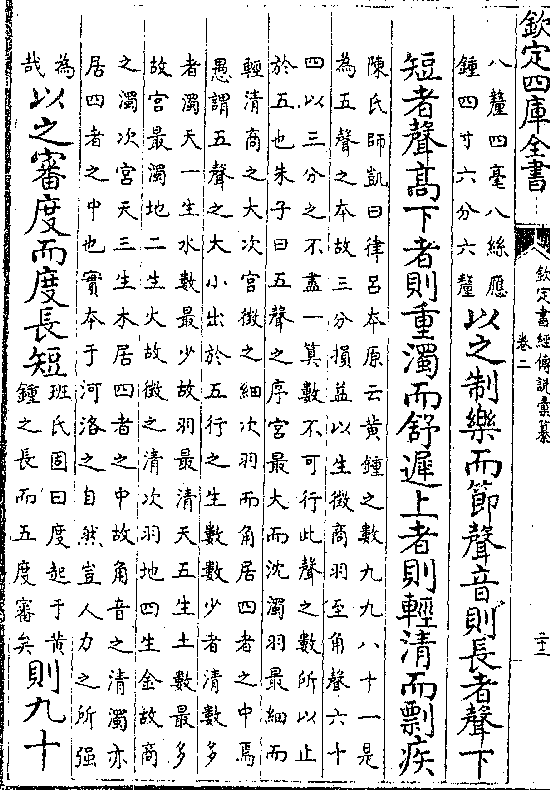 欽定四庫全書
欽定書經傳說彙纂
卷二
八釐四毫八絲應
鍾四寸六分六釐
以之制樂而節聲音則長者聲下
短者聲髙下者則重濁而舒遲上者則輕清而剽疾
陳氏師凱曰律呂本原云黄鍾之數九九八十一是
為五聲之本故三分損益以生徵商羽至角聲六十
四以三分之不盡一算數不可行此聲之數所以止
於五也朱子曰五聲之序宫最大而沈濁羽最細而
輕清商之大次宫徵之細次羽而角居四者之中焉
愚謂五聲之大小出於五行之生數數少者清數多
者濁天一生水數最少故羽最清天五生土數最多
故宫最濁地二生火故徵之清次羽地四生金故商
之濁次宫天三生木居四者之中故角音之清濁亦
居四者之中也實本于河洛之自然豈人力之所强
為
哉
以之審度而度長短
班氏固曰度起于黄
鍾之長而五度審矣
則九十